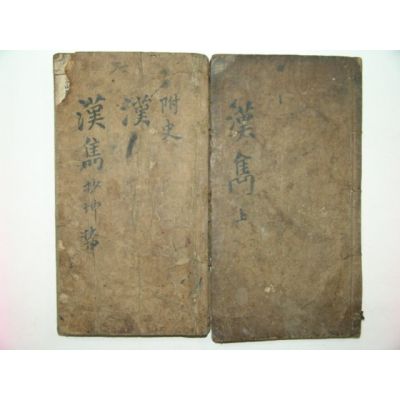 漢雋 上
附史
漢
漢雋 抄